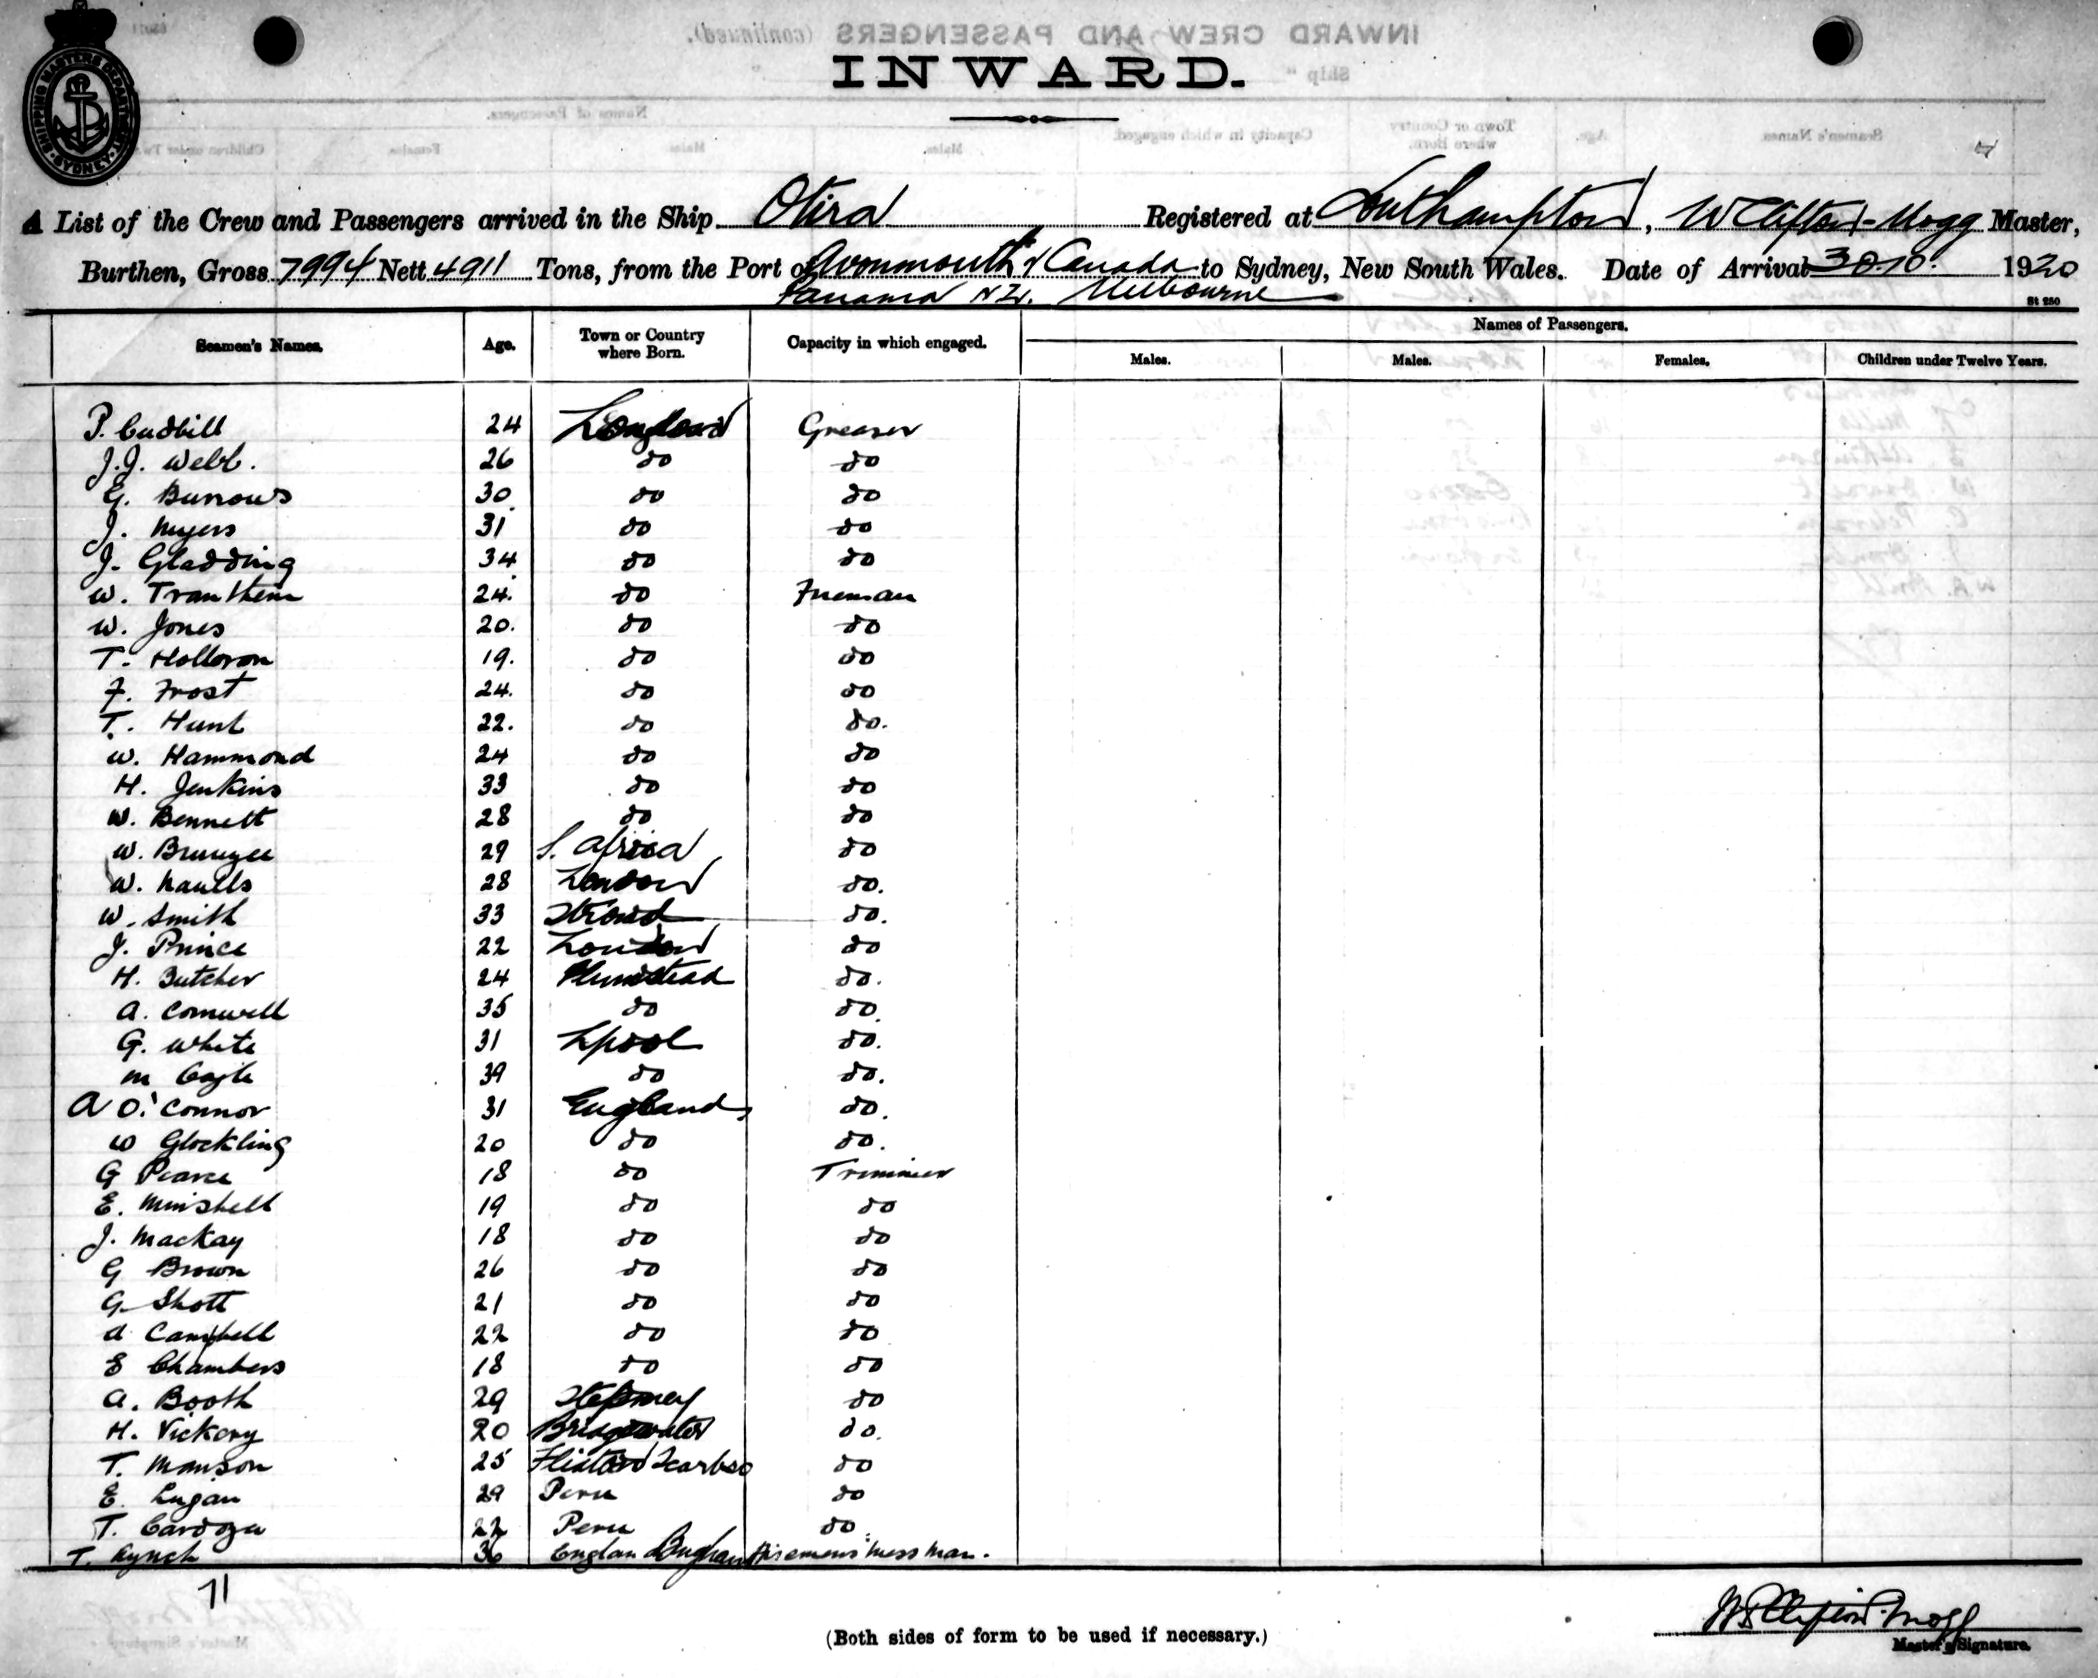 INWARD.
SHIPPING MASTERS DEPARTMENT SYDNEY
A List of the Crew and Passengers arrived in the Ship Otira Registered at Southampton, W Clifton-Mogg Master,
Burthen, Gross 7994 Nett 4911 Tons, from the Port of Avonmouth & Canada to Sydney, New South Wales. Date of Arrival 30.10. 1920
Panama N.Z. Melbourne
St 280
Seamen's Names. Age. Town or Country where Born. Capacity in which engaged. Names of Passengers.
Males. Males. Females. Children under Twelve Years.
P. Cudbill 24 London Greaser
J.J. Webb. 26 do do
G. Burrows 30 do do
J. Myers 31 do do
J. Gladding 34 do do
W. Tranthem 24. do Fireman
W. Jones 20. do do
T. Holloron 19. do do
F. Frost 24. do do
T. Hunt 22. do do.
W. Hammond 24 do do
H. Jenkins 33 do do
W. Bennett 28 do do
W. 29 S. Africa do
W. Naulls 28 London do.
W. Smith 33 Stroud do.
J. Prince 22 London do
H. Butcher 24 Plumstead do.
A. Cornwell 35 do do.
G. White 31 Lpool do.
M 39 do do.
A O'Connor 31 England do.
W Glockling 20 do do.
G Pearce 18 do Trimmer
E. Minshell 19 do do
J. Mackay 18 do do
G Brown 26 do do
G. Shott 21 do do
A Campbell 22 do do
E Chambers 18 do do
A. Booth 29 Stepney do
H. Vickery 20 Bridgewater do.
T. Manson 25 do
E. Lugan 29 Peru do
T. Cardoza 22 Peru do.
T. Lynch 36 England Firemens Mess Man.
71
(Both sides of form to be used if necessary.)
W Clifton-Mogg
Master's Signature.